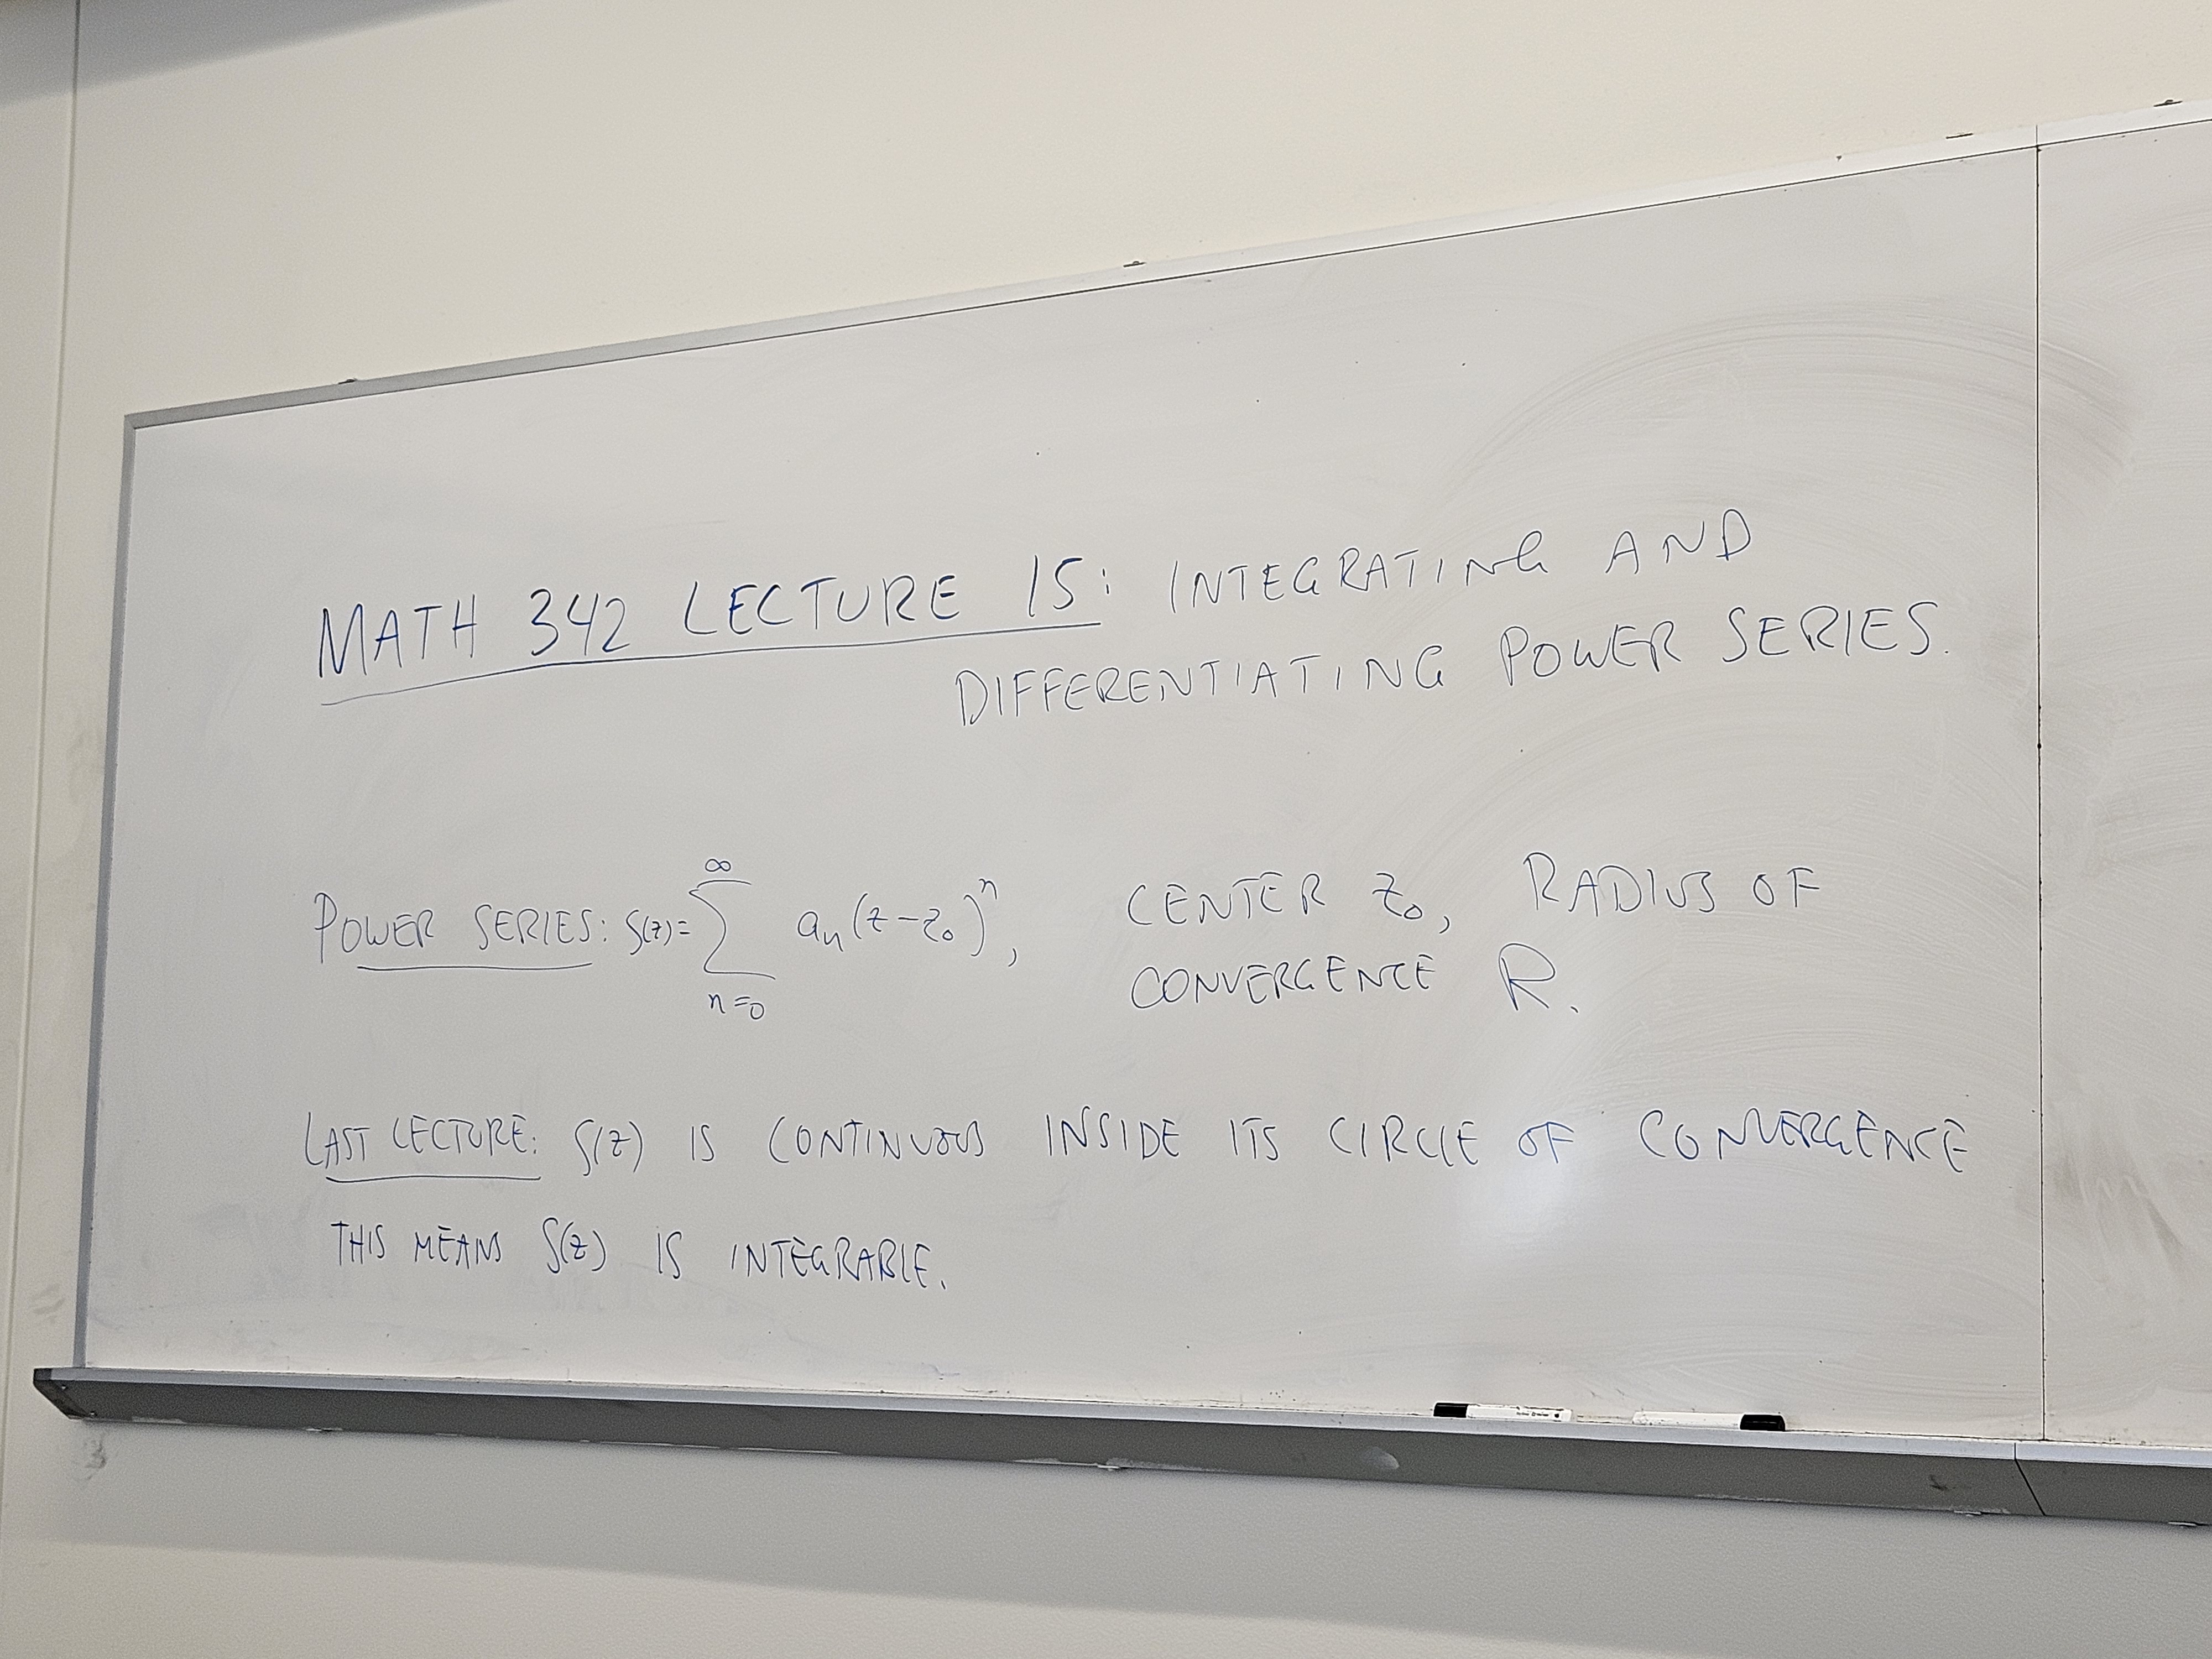 MATH 342 LECTURE 15: INTEGRATING AND
DIFFERENTIATING POWER SERIES.
POWER SERIES: S(z)= ∞ ∑ n=0 aₙ(z-z₀)ⁿ, CENTER z₀, RADIUS OF
CONVERGENCE R.
LAST LECTURE: S(z) IS CONTINUOUS INSIDE ITS CIRCLE OF CONVERGENCE
THIS MEANS S(z) IS INTEGRABLE.